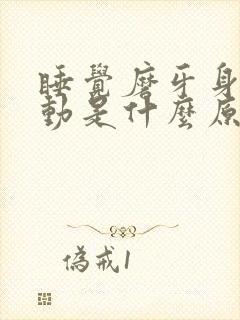 睡覺磨牙身
動是什麼原
偽戒1